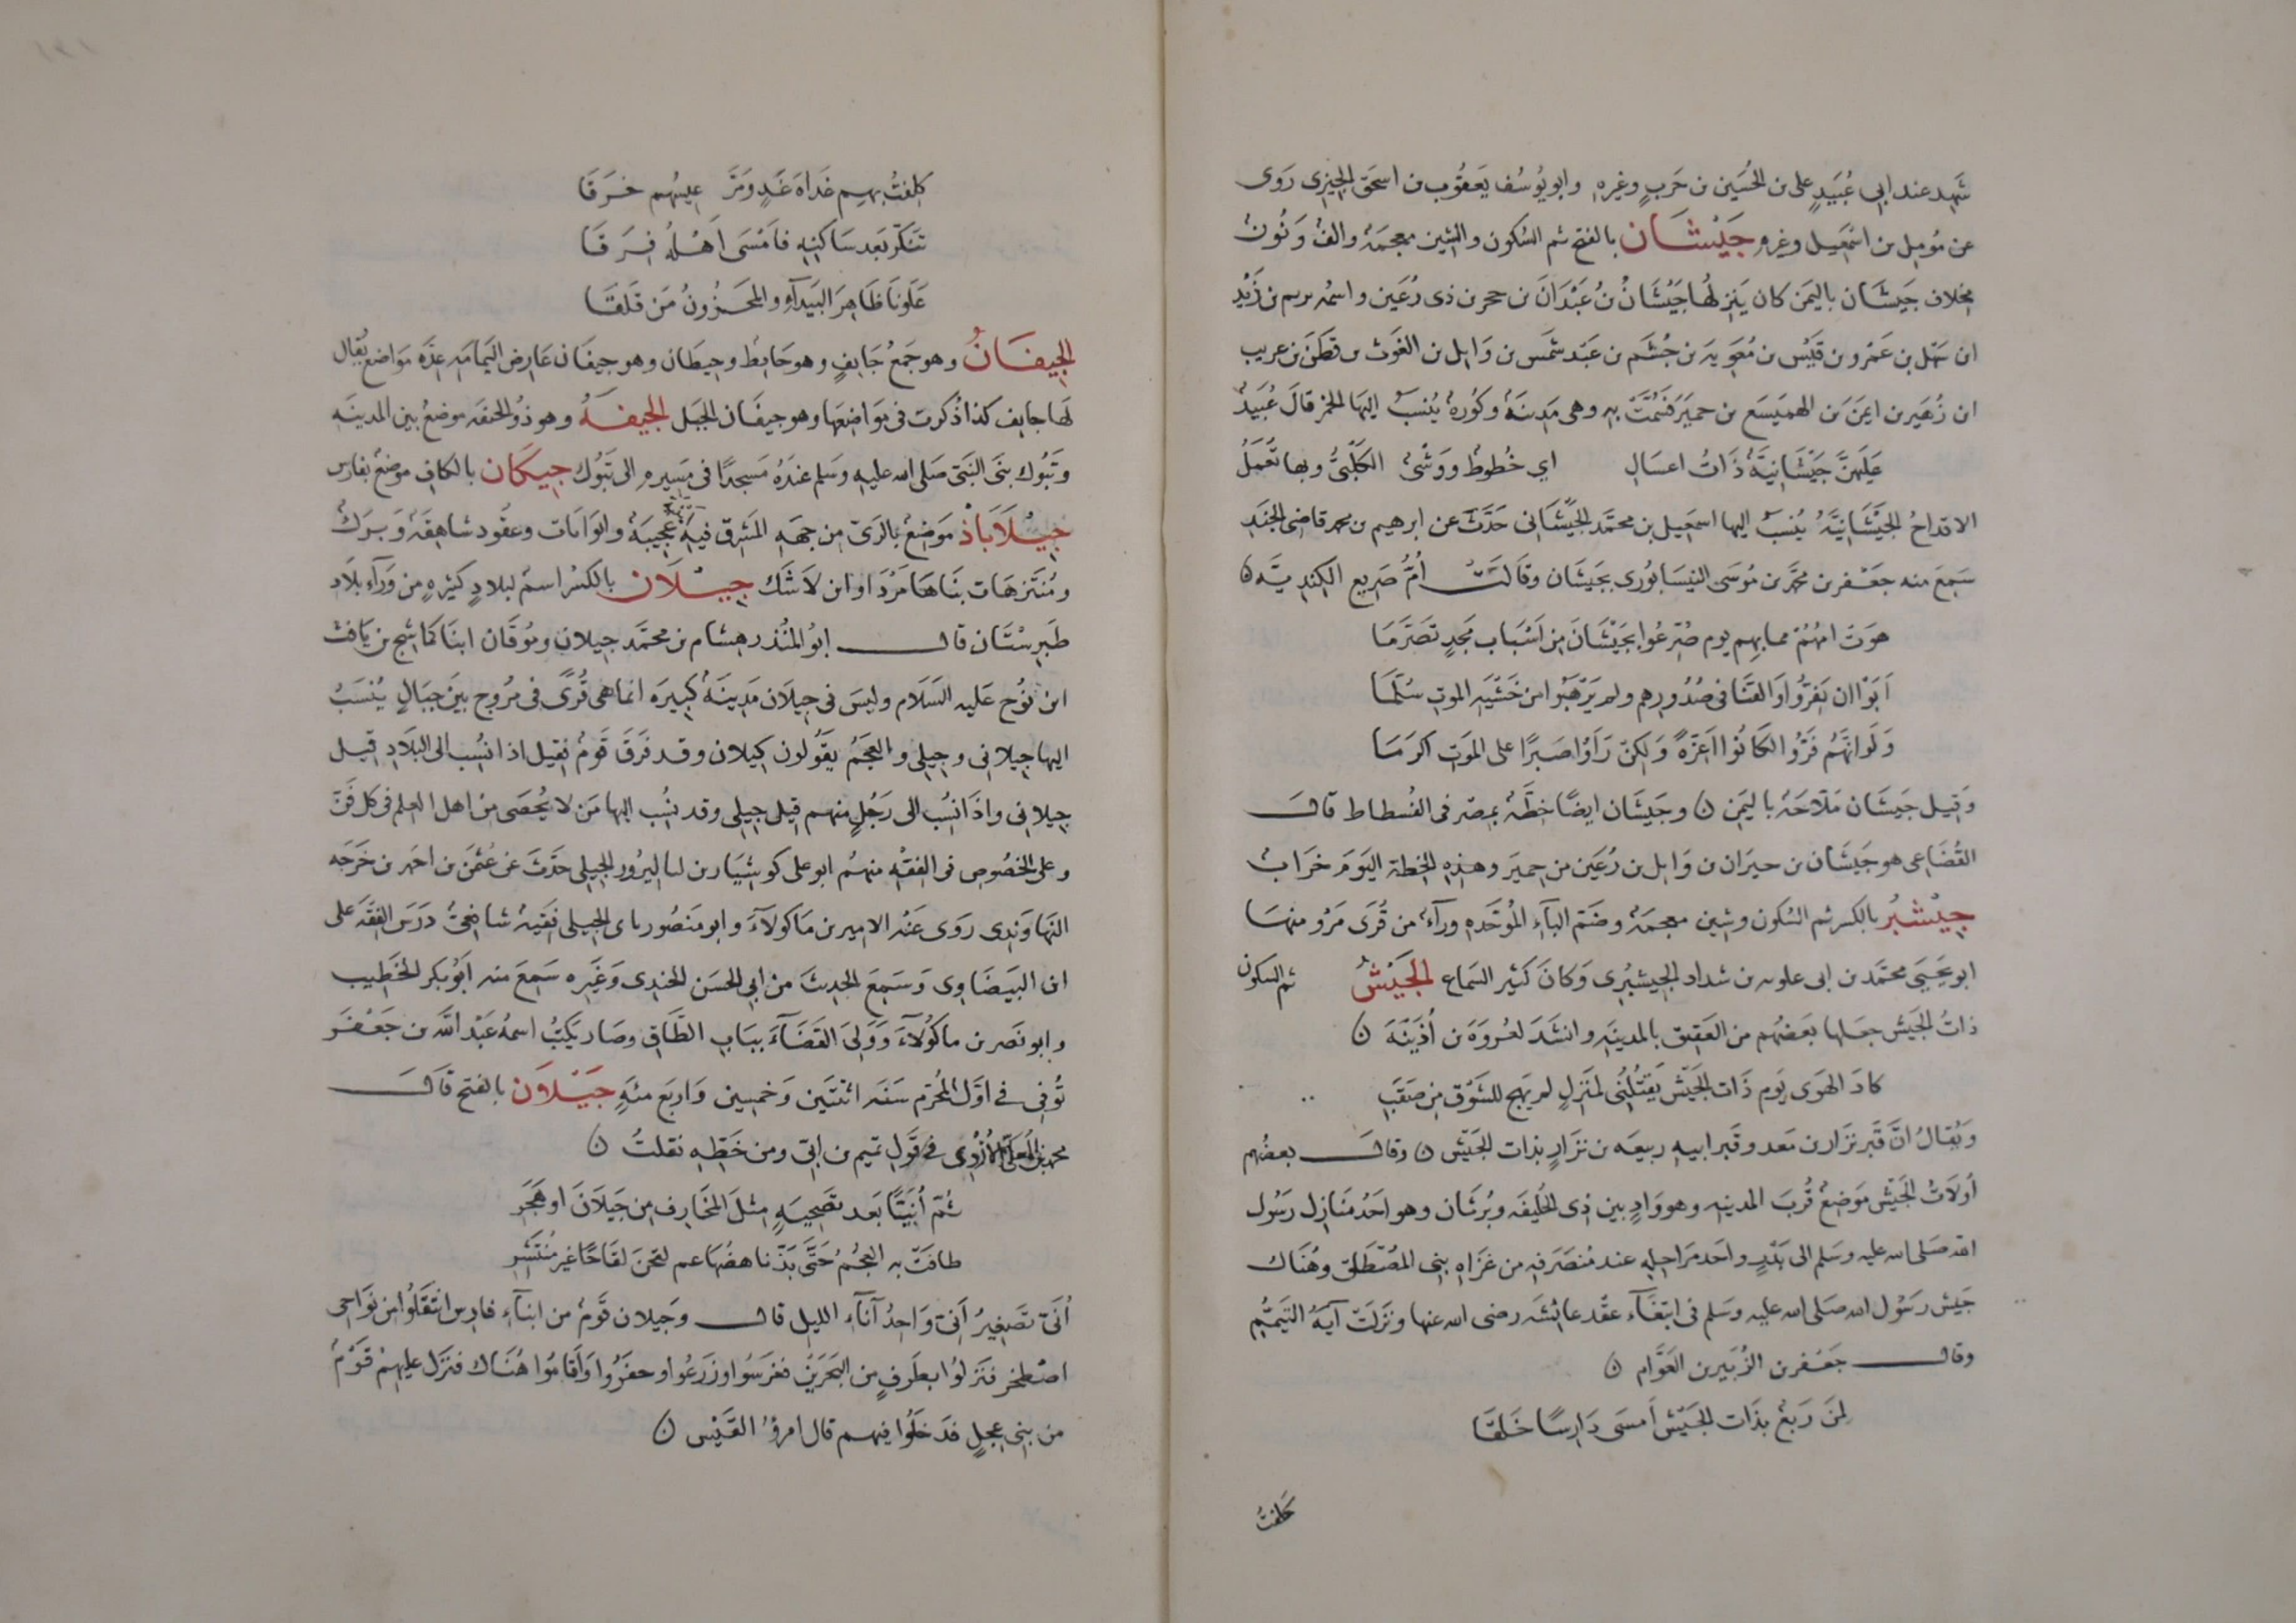 شهد عند ابي عُبَيدٍ على بن الحُسَين بن حَربٍ وغيره وابو يوُسُف يَعقُوب بن اسحَق الجيزى رَوى
عن مُومِل بن اسْمعيل وغيرهِ جَيْشَان بالفتح ثم السُكون والشين معجمةٌ والفٌ وَنُونٌ
مخلاف جَيشَان باليمَن كان يَنزلهُا جَيْشَانُ بنُ عَبْدَانَ بن حجر بن ذى رُعَين واسمُه يريم بن زَيْدِ
ابن سَهْل بن عَمْرو بن قَيْس بن مُعَويَه بن جُشَم بن عَبْد شَمس بن وَايل بن الغَوث بن قَطَن بن عريب
ابن زُهَير بن ايمَنَ بن الهميَسَع بن حميَر فسُمّتَ به وهى مَدينَةٌ وكوُرةٌ يُنسَبُ اليهَا الخمرُ قالَ عُبَيدٌ
عَلَيهنَّ جَيْشَانيّةٌ ذَاتُ اعسَالِ اي خُطُوط ووَشْىٌ الكَلبْىُّ وبها تُعمَلُ
الاقداحُ الجَيْشَانيَّةُ يُنسَبُ اليها اسمَعِيل بن محمَّد الجَيْشَانى حَدَّثَ عن ابرهيم بن محمد قاضى الجَنَدِ
سَمِعَ منه جعَفر بن محمَّد بن مُوسَى النيسَابُورى بجَيشَان وقَالَتْ أمُّ صَريع الكنديّه ن
هوَت امهُمْ مما بهِم يوم صُرّعُوا بجَيْشَانَ مِن اَسْبَاب مَجدٍ تَصَرَّمَا
اَبَوْا ان يَفِرُّوا وَالقَنَا في صُدُورهم ولم يَرْهَبُوا من خَشْيَهِ الموتِ سُلَّمَا
وَلَو انَّهُم فَرُّوا لكَانُوا اَعِزّةً وَلكِن رَاَوْا صَبرًا على الموَتِ اكرَمَا
وَقيِل جَيشَان مَلّاحَةٌ باليَمن ن وجَيشَان ايضًا خِطَّةٌ بمصرَ فى الفُسطاط قالَ
القُضَاعى هو جَيشَان بن حيرَان بن وَايل بن رُعَين من حِميَر وهذه الخِطة اليَومَ خرَاب
جِيْشبُر بالكسر ثم السُكون وشين معجمةٌ وضَمّ البآءِ المُوَحّده ورآءٌ من قُرَى مَرْو منهَا
ابو يَحيَى محمَّد بن ابى علويه بن شداد الجيشبُرى وَكانَ كثير السَماع الجَيْشُ ثم السكون
ذاتُ الجَيش جعَلها بعَضُهم من العَقيق بالمدينَهِ وانشَدَ لعُروَةَ بن أُذَينَةَ ن
كادَ الهوَى يَوم ذَات الجَيْش يَقتُلنُى لمنَزلٍ لم يَهج للشَوْق مِن صَقَبِ
وَيُقالُ انَّ قبَر نزَار بن مَعد وقبر ابيهِ ربيعَه بن نزَارٍ بذات الجَيْش ن وقالَ بعضُهم
أولَاتُ الجَيْش مَوضِعٌ قُربَ المدينهِ وهو وَادٍ بين ذِى الحُليفَه وبُرثَان وهو احَدُ منَازلِ رَسُول
الله صَلى الله عليه وسَلم الى بَدْرٍ واحَد مرَاحِلهِ عند مُنصَرَفهِ من غزَاهِ بنى المُصْطَلق وهُنَاك
جَيش رسَوُل الله صَلى الله عليه وسَلم فى ابتغَآء عقْد عايشَه رضى الله عنها ونَزَلَت آيةُ التيَمُّم
وقالَ جَعْفر بن الزُبَير بن العَوَّام ن
لِمنَ رَبعٌ بذَات الجَيْش اَمسَى دَارِسًا خَلَقَا
كلفتُ
كلِفتُ بهِم غدَاةَ غَدٍ وَمرَّ عيسُهم خرَقَا
تنَكّر بَعد سَاكنِهِ فاَمْسَى اَهْلُهُ فِرَقَا
عَلَونَا ظَاهِرَ البَيدَآءِ والمحَزُونُ مَن قلَقَا
الجِيفَانُ وهو جَمعُ جَايفٍ وهو حَايطٌ وحيِطَان وهو جيفَان عَارِض اليمَامَهِ عدَّه موَاضع يُقال
لهَا جايِف كذا ذُكرت فى موَاضعِهَا وهو جيفَان الجبَل الجيفَةُ وهو ذُو الحيفه موضعٌ بين المدينَه
وتبُوك بنَى النبَىّ صَلى الله عليه وسَلم عندَهُ مَسجدًا فى مَسِيرهِ الى تَبُوك جيِكَان بالكافِ موضعٌ بفارس
جيْلَاَبَاذْ مَوَضعٌ بالرَىّ من جهَهِ المشَرق فيهِ ابنيَةٌ عَجيبَةٌ وايوَانات وعقُود شاهقَةٌ وَبرَكٌ
ومُنتَزهَات بنَاهَا مَرْدَاوا بن لَاشَك جيْلَان بالكَسْر اسمٌ لبلادٍ كثيرهٍ من وَرآءِ بلَادِ
طَبرستَان قالَ ابوُ المنُذر هشام بن محمَّد جيلان ومُوقَان ابنَا كمَاشج بن يَافث
ابن نوُح عَليهِ السَلام وليسَ فى جيلَان مَدينَةٌ كَبيرَه انما هى قُرًى فى مرُوج بيَنَ جبَالٍ يُنْسَبُ
اليها جيلانى وجيلى والعَجَمُ يقَولون كيلان وقد فَرَقَ قومٌ فقيل اذا نسُب الى البلَادِ قيل
جيلانى واذَا نسُب الى رَجُلٍ منهم قيلَ جيلى وقد نسُب اليها مَن لا يُحصَى مِن اهل العلم فى كل فَنّ
وعلى الخصُوص فى الفقْهِ منهمُ ابو على كوشيَار بن لباليرُوز الجيلى حدَّثَ عن عُثمن بن احمد بن خَرجَه
النهاوَندِى رَوَى عَنْه الامير بن مَاكوُلآءَ وابو منَصُور باى الجيلى فقَيهٌ شافعىٌّ دَرَسَ الفقَهَ على
ابن البَيضَاوى وَسَمعَ الحدِيثَ من ابى الحسَن الجندى وَغيَره سَمِعَ منه اَبوُ بَكر الخَطِيب
وابو نصَر بن ماكوُلآءَ وَوَلىَ القَضَآءَ ببَابِ الطَّاقِ وصَار يَكتُبُ اسمهُ عَبْد الله بن جَعْفَر
تُوفى فى اوّل المحُرّم سَنَه اثنتَين وَخمسِين وَاربَع مئهٍ جَيْلَان بالفتح قَالَ
محمد بن المُعَلّى الاُزْدِى فى قَول تميم بن ابىّ ومن خَطّهِ نقلتُ ن
ثُمّ أُنَيّنًا بَعد تصَبحيهِ مِثلَ المخَارِف مِن جَيلَانَ او هَجَرِ
طافَتْ بهِ العجُمُ حَتَّى بَذّ ناهضُهَا عم لقحنَ لقَاحًا غير مُنتَشِرِ
أُنَىّ تصَغيرُ اَنى وَاحدُ آنآءِ الليل قالَ وجَيلان قَومٌ من ابنآءِ فارس انتَقَلُوا من نوَاحى
اصْطخر فنَزلُوا بطَرفٍ من البَحرَين فغرَسُوا وزَرعُوا وحفَرُوا وَاقَامُوا هُنَاك فنزَل عليهمْ قَوْمٌ
من بنى عِجلٍ فدَخَلُوا فيهم قال امرؤُ القَيْس ن